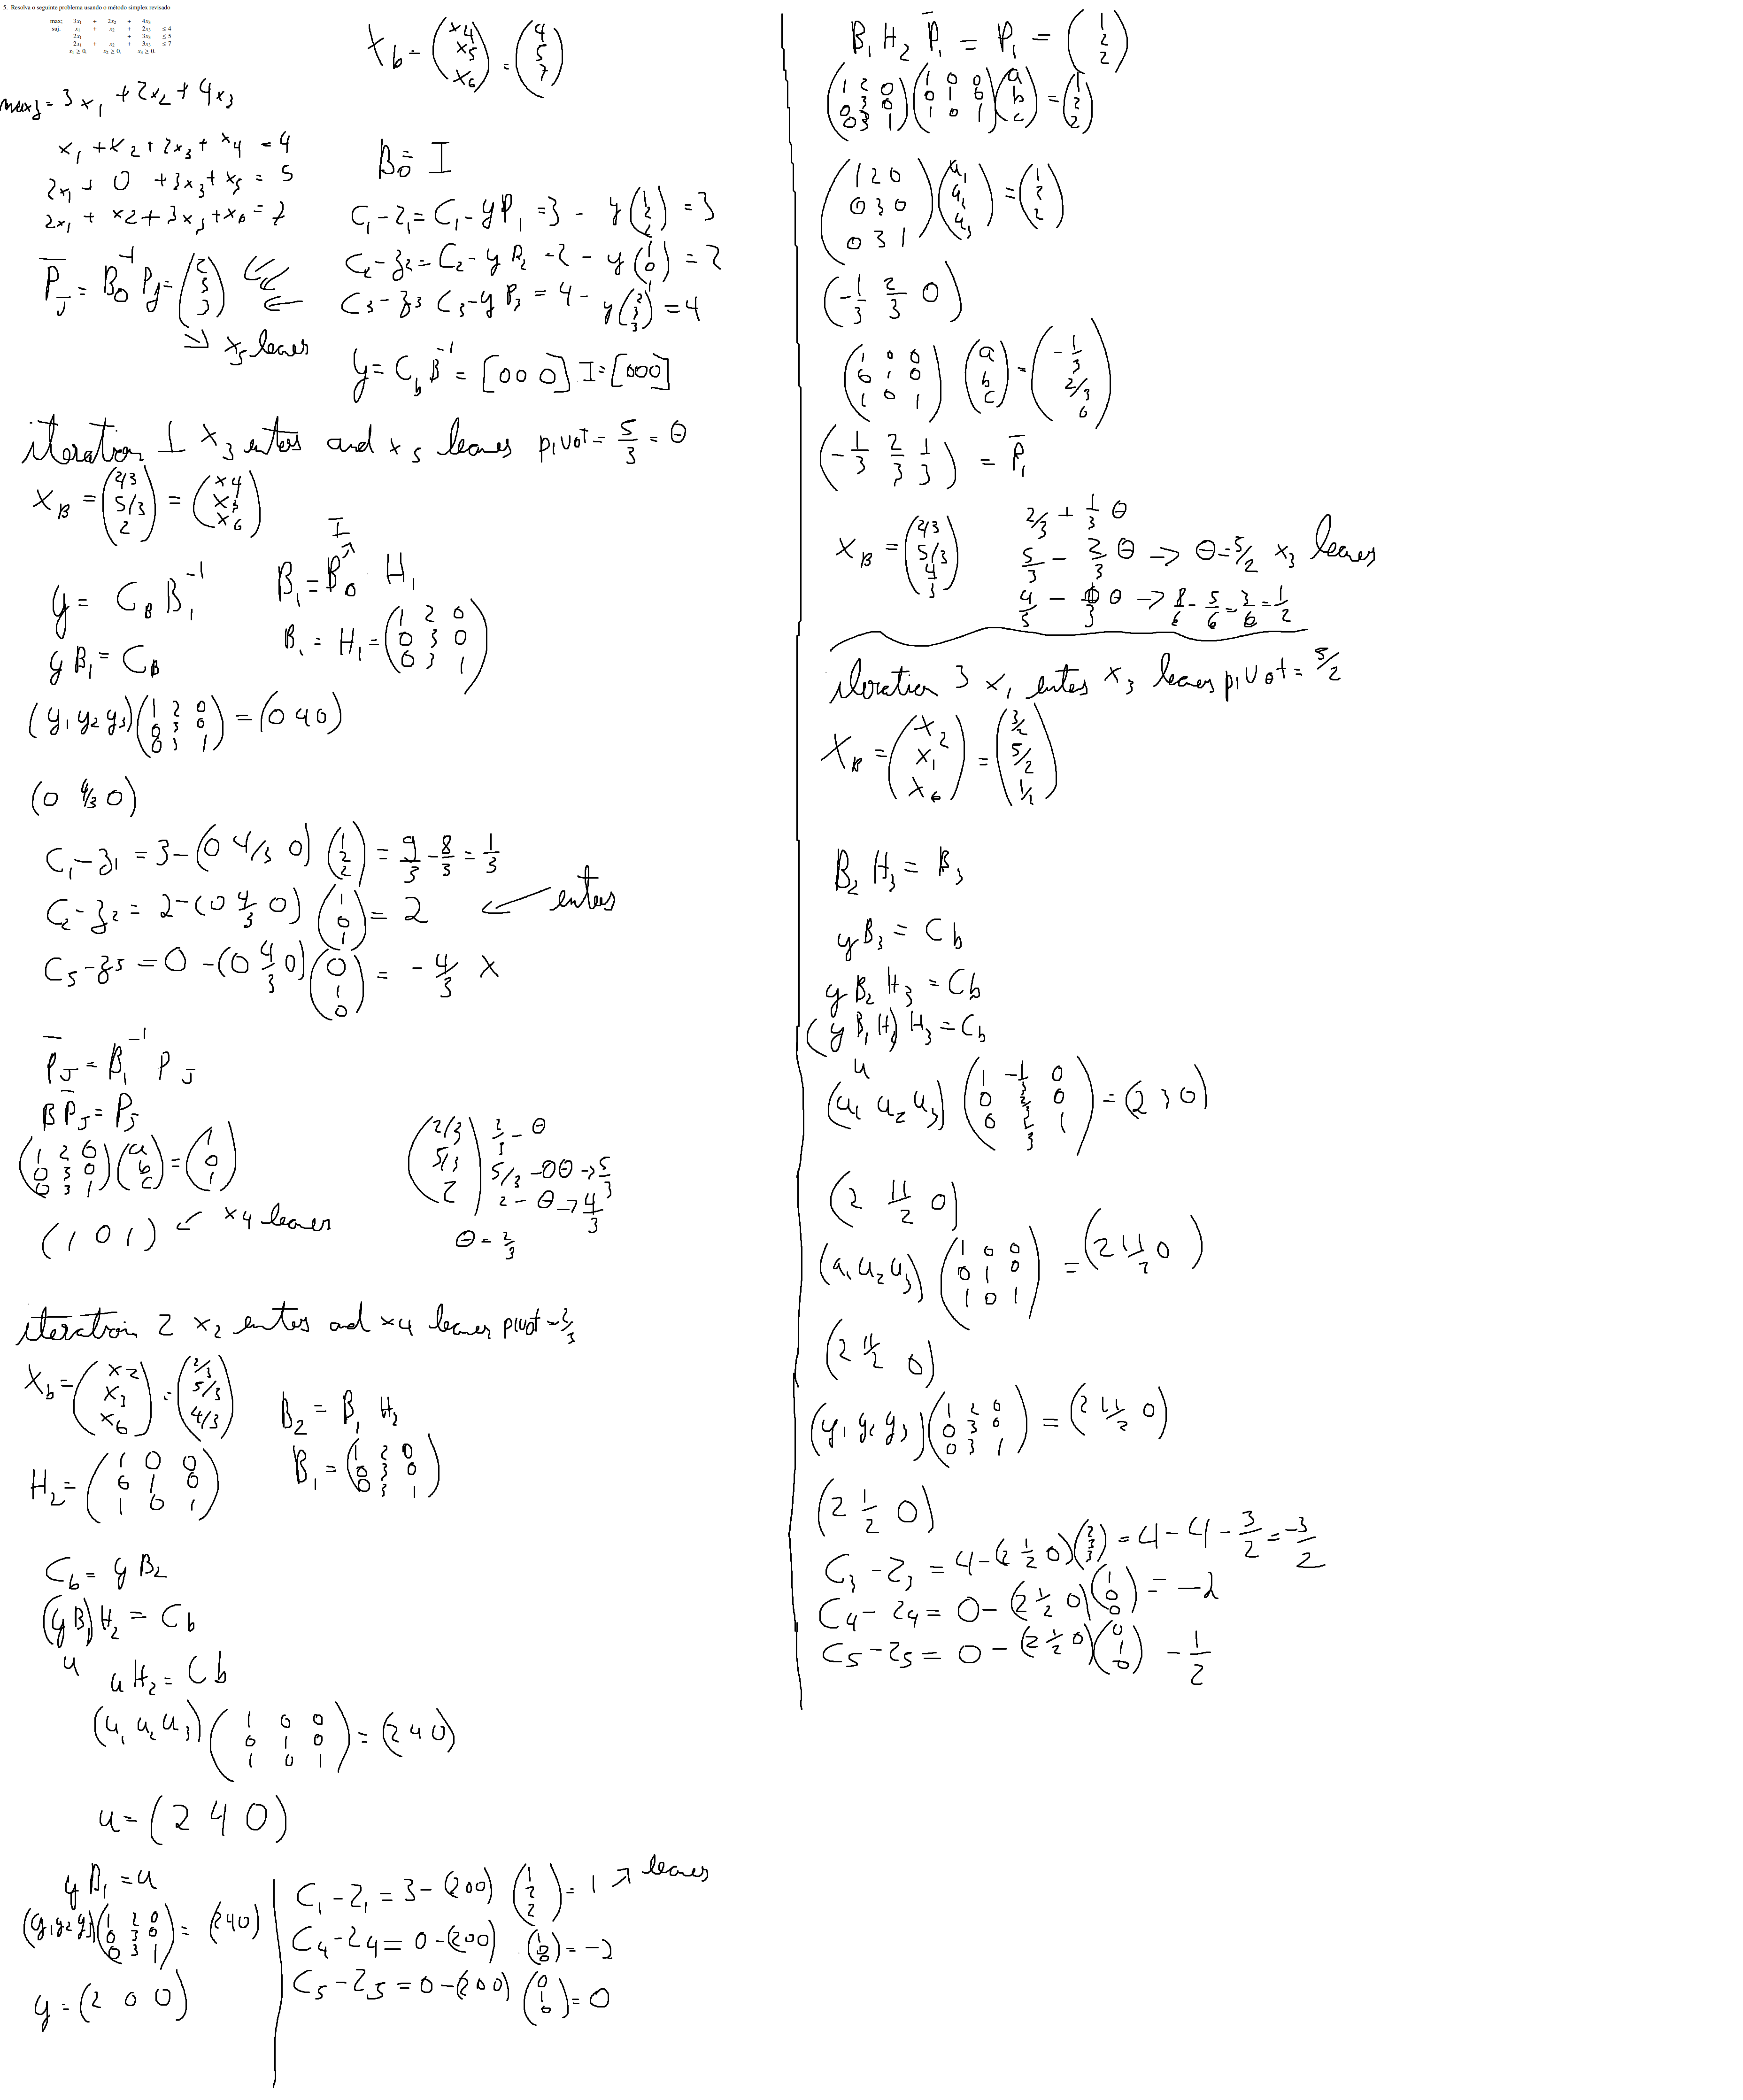 5. Resolva o seguinte problema usando o método simplex revisado
max; 3x₁ + 2x₂ + 4x₃
suj. x₁ + x₂ + 2x₃ ≤ 4
2x₁ + 3x₃ ≤ 5
2x₁ + x₂ + 3x₃ ≤ 7
x₁ ≥ 0, x₂ ≥ 0, x₃ ≥ 0.
max z = 3x₁ + 2x₂ + 4x₃
x₁ + x₂ + 2x₃ + x₄ = 4
2x₁ + 0 + 3x₃ + x₅ = 5
2x₁ + x2 + 3x₃ + x₆ = 7
P̄_J = B₀⁻¹ P_J = (2 3 3)
→ x₅ leaves
X_b = (x4 x5 x6) = (4 5 7)
B₀ = I
C₁ - Z₁ = C₁ - yP₁ = 3 - y(1 2 2) = 3
C₂ - z₂ = C₂ - yP₂ = 2 - y(1 0 1) = 2
C₃ - z₃ C₃ - yP₃ = 4 - y(2 3 3) = 4
y = C_b B⁻¹ = [0 0 0] I = [0 0 0]
iteration 1 x₃ enters and x₅ leaves pivot = 5/3 = θ
X_B = (2/3 5/3 2) = (x4 x3 x6)
y = C_B B₁⁻¹
y B₁ = C_B
I
B₁ = B₀ H₁
B₁ = H₁ = (1 2 0 0 3 0 0 3 1)
(y₁ y₂ y₃)(1 2 0 0 3 0 0 3 1) = (0 4 0)
(0 4/3 0)
C₁ - z₁ = 3 - (0 4/3 0)(1 2 2) = 9/3 - 8/3 = 1/3
C₂ - z₂ = 2 - (0 4/3 0)(1 0 1) = 2 ← enters
C₅ - z₅ = 0 - (0 4/3 0)(0 1 0) = -4/3 x
P̄_J = B₁⁻¹ P_J
B P̄_J = P_J
(1 2 0 0 3 0 0 3 1)(a b c) = (1 0 1)
(1 0 1) ← x4 leaves
(2/3 5/3 2) 2/3 - θ
5/3 - 0θ → 5/3
2 - θ → 4/3
θ = 2/3
iteration 2 x₂ enters and x4 leaves pivot = 2/3
X_b = (x2 x3 x6) = (2/3 5/3 4/3)
B₂ = B₁ H₂
H₂ = (1 0 0 0 1 0 1 0 1)
B₁ = (1 2 0 0 3 0 0 3 1)
C_b = y B₂
(y B₁) H₂ = C_b
u
u H₂ = C b
(u₁ u₂ u₃)(1 0 0 0 1 0 1 0 1) = (2 4 0)
u = (2 4 0)
y B₁ = u
(y₁ y₂ y₃)(1 2 0 0 3 0 0 3 1) = (2 4 0)
y = (2 0 0)
C₁ - Z₁ = 3 - (2 0 0)(1 2 2) = 1 ↗ leaves
C₄ - Z₄ = 0 - (2 0 0)(1 0 0) = -2
C₅ - Z₅ = 0 - (2 0 0)(0 1 0) = 0
B₁ H₂ P̄₁ = P₁ = (1 2 2)
(1 2 0 0 3 0 0 3 1)(1 0 0 0 1 0 1 0 1)(a b c) = (1 2 2)
(1 2 0 0 3 0 0 3 1)(u₁ u₂ u₃) = (1 2 2)
(-1/3 2/3 0)
(1 0 0 0 1 0 1 0 1)(a b c) = (-1/3 2/3 0)
(-1/3 2/3 1/3) = P̄₁
X_B = (2/3 5/3 4/3)
2/3 + 1/3 θ
5/3 - 2/3 θ → θ = 5/2 x₃ leaves
4/5 - 1/3 θ → 8/6 - 5/6 = 3/6 = 1/2
iteration 3 x₁ enters x₃ leaves pivot = 5/2
X_B = (x₂ x₁ x₆) = (3/2 5/2 1/2)
B₂ H₃ = B₃
y B₃ = C b
y B₂ H₃ = C b
(y B₁ H) H₃ = C b
u
(u₁ u₂ u₃)(1 -1/3 0 0 2/3 0 0 2/3 1) = (2 3 0)
(2 11/2 0)
(u₁ u₂ u₃)(1 0 0 0 1 0 1 0 1) = (2 11/2 0)
(2 11/2 0)
(y₁ y₂ y₃)(1 2 0 0 3 0 0 3 1) = (2 11/2 0)
(2 1/2 0)
C₃ - Z₃ = 4 - (2 1/2 0)(2 3 3) = 4 - 4 - 3/2 = -3/2
C₄ - Z₄ = 0 - (2 1/2 0)(1 0 0) = -2
C₅ - Z₅ = 0 - (2 1/2 0)(0 1 0) -1/2